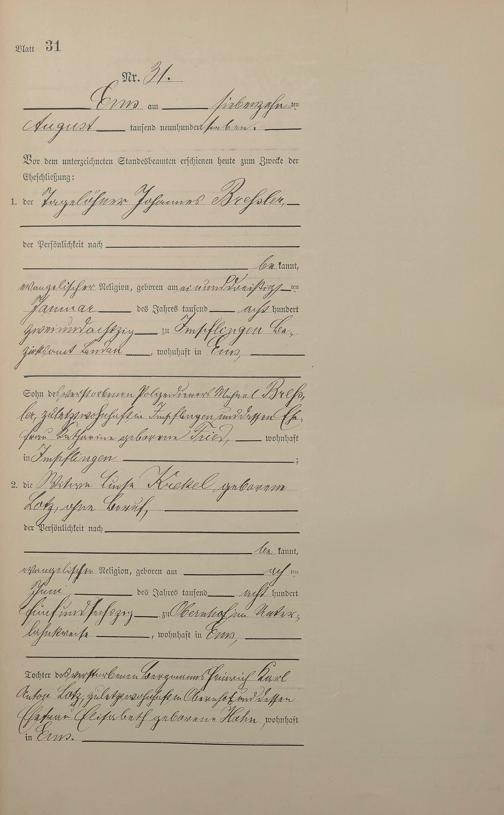 Blatt 31
Nr. 31.
Ems am siebenzehnten
August tausend neunhundert sieben.
Vor dem unterzeichneten Standesbeamten erschienen heute zum Zwecke der
Eheschließung:
1. der Tagelöhner Johannes Breßler,
der Persönlichkeit nach
be kannt,
evangelischer Religion, geboren am einunddreißigsten
Januar des Jahres tausend acht hundert
zweiundachtzig zu Impflingen Be-
zirksamt Landau, wohnhaft in Ems,
Sohn des verstorbenen Polizeidieners Michael Breß-
ler, zuletzt wohnhaft in Impflingen und dessen Ehe-
frau Katharine geborene Fried, wohnhaft
in Impflingen ;
2. die Witwe Luise Krekel geborene
Lotz, ohne Beruf,
der Persönlichkeit nach
be kannt,
evangelischer Religion, geboren am ach ten
Juni, des Jahres tausend acht hundert
fünfundsechszig zu Obernhof im Unter-
lahnkreise, wohnhaft in Ems,
Tochter des verstorbenen Bergmanns Heinrich Karl
Anton Lotz, zuletzt wohnhaft in Obernhof und dessen
Ehefrau Elisabeth geborene Hahn, wohnhaft
in Ems.